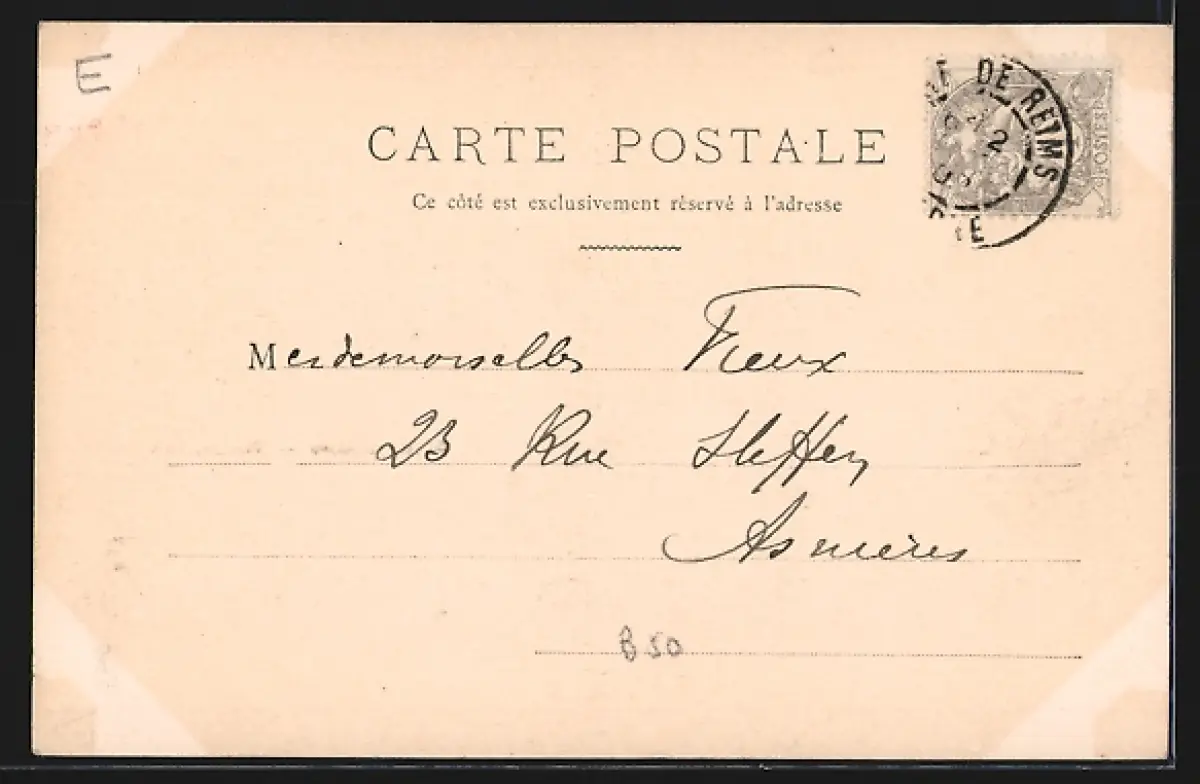 E
CARTE POSTALE
Ce côté est exclusivement réservé à l'adresse
DE REIMS
2
POSTES
Mesdemoiselles Fieux
23 Rue Steffen
Asnières
850